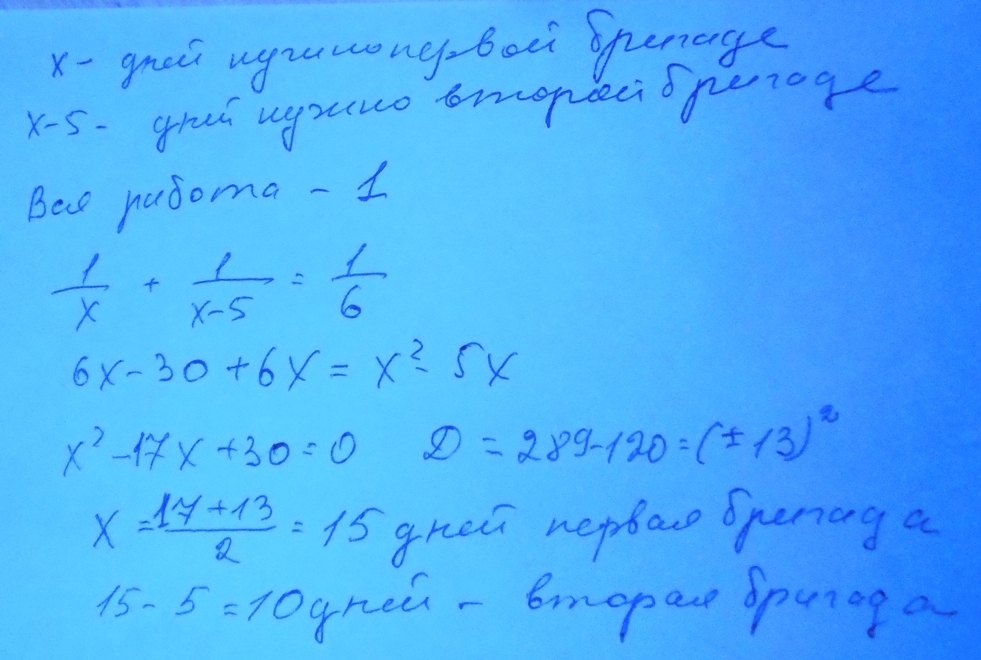 x - дней нужно первой бригаде
x-5 - дней нужно второй бригаде
Вся работа - 1
1/x + 1/(x-5) = 1/6
6x - 30 + 6x = x² - 5x
x² - 17x + 30 = 0 D = 289-120 = (±13)²
x = (17+13)/2 = 15 дней первая бригада
15 - 5 = 10 дней - вторая бригада